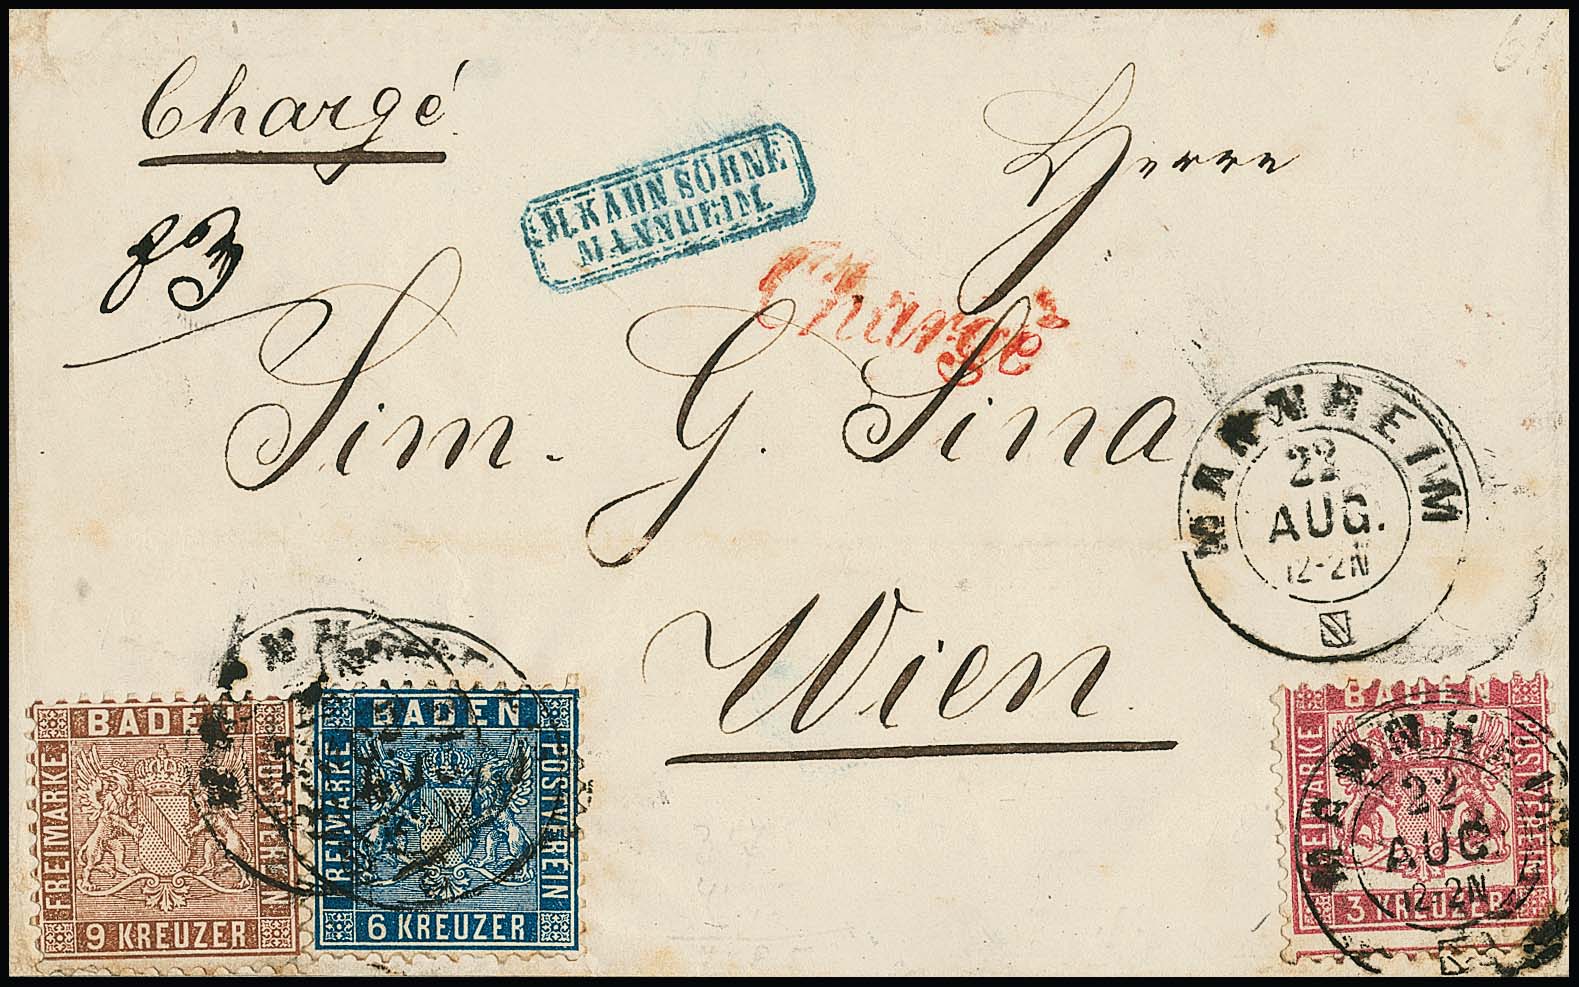 Chargé
83
M. KAHN SÖHNE
MANNHEIM.
Chargé
Herrn
Sim. G. Sina
Wien
MANNHEIM
22
AUG.
12-2N
BADEN
FREIMARKE
9 KREUZER
BADEN
FREIMARKE
POSTVEREIN
6 KREUZER
BADEN
FREIMARKE
POSTVEREIN
3 KREUZER
MANNHEIM
22
AUG.
12-2N